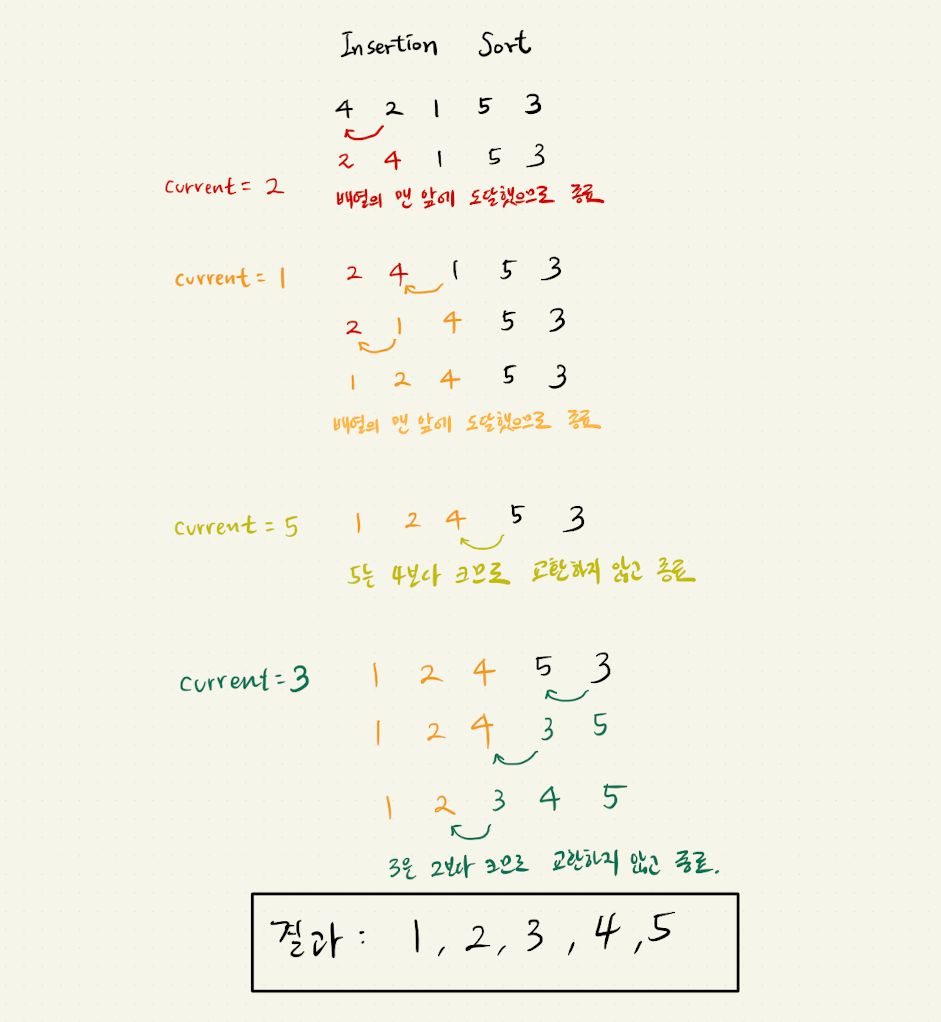 Insertion Sort
4 2 1 5 3
2 4 1 5 3
current = 2
배열의 맨 앞에 도달했으므로 종료
current = 1 2 4 1 5 3
2 1 4 5 3
1 2 4 5 3
배열의 맨 앞에 도달했으므로 종료
current = 5 1 2 4 5 3
5는 4보다 크므로 교환하지 않고 종료
current = 3 1 2 4 5 3
1 2 4 3 5
1 2 3 4 5
3은 2보다 크므로 교환하지 않고 종료.
결과 : 1, 2, 3, 4, 5